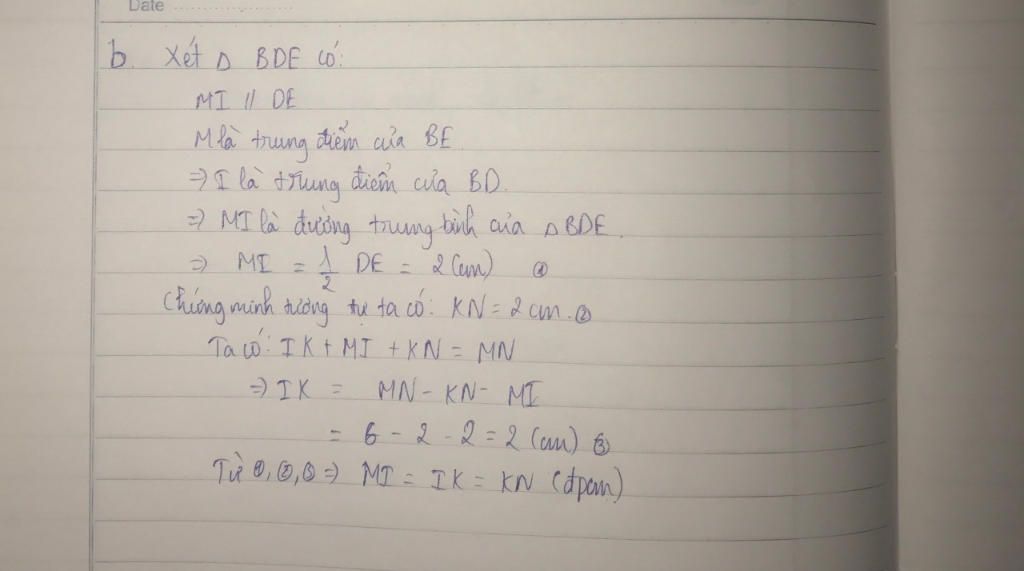 Date
b. Xét Δ BDE có:
MI // DE
M là trung điểm của BE
=> I là trung điểm của BD.
=> MI là đường trung bình của Δ BDE.
=> MI = 1/2 DE = 2 (cm) ①
Chứng minh tương tự ta có: KN = 2 cm. ②
Ta có: IK + MI + KN = MN
=> IK = MN - KN - MI
= 6 - 2 - 2 = 2 (cm) ③
Từ ①, ②, ③ => MI = IK = KN (đpcm)